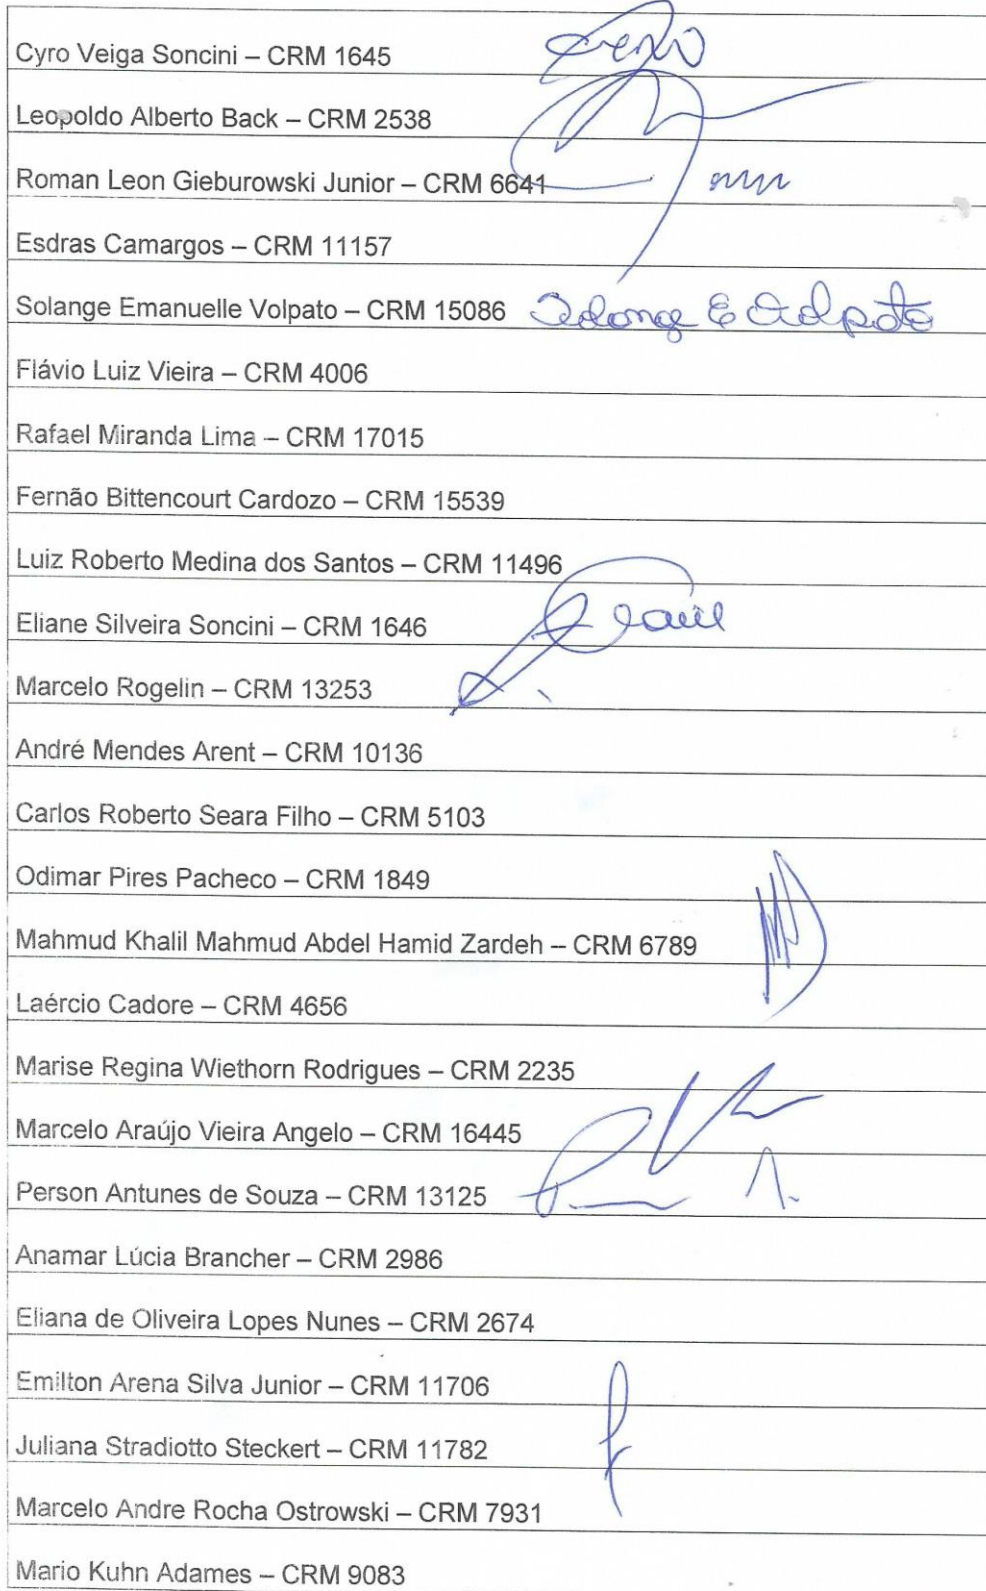 Cyro Veiga Soncini – CRM 1645
Leopoldo Alberto Back – CRM 2538
Roman Leon Gieburowski Junior – CRM 6641
Esdras Camargos – CRM 11157
Solange Emanuelle Volpato – CRM 15086 Solange E Volpato
Flávio Luiz Vieira – CRM 4006
Rafael Miranda Lima – CRM 17015
Fernão Bittencourt Cardozo – CRM 15539
Luiz Roberto Medina dos Santos – CRM 11496
Eliane Silveira Soncini – CRM 1646
Marcelo Rogelin – CRM 13253
André Mendes Arent – CRM 10136
Carlos Roberto Seara Filho – CRM 5103
Odimar Pires Pacheco – CRM 1849
Mahmud Khalil Mahmud Abdel Hamid Zardeh – CRM 6789
Laércio Cadore – CRM 4656
Marise Regina Wiethorn Rodrigues – CRM 2235
Marcelo Araújo Vieira Angelo – CRM 16445
Person Antunes de Souza – CRM 13125
Anamar Lúcia Brancher – CRM 2986
Eliana de Oliveira Lopes Nunes – CRM 2674
Emilton Arena Silva Junior – CRM 11706
Juliana Stradiotto Steckert – CRM 11782
Marcelo Andre Rocha Ostrowski – CRM 7931
Mario Kuhn Adames – CRM 9083